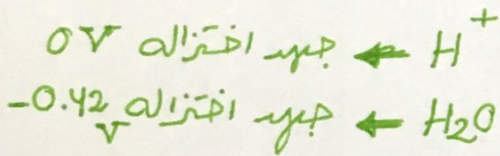 H⁺ ← جهد اختزاله 0 V
H₂O ← جهد اختزاله -0.42 V